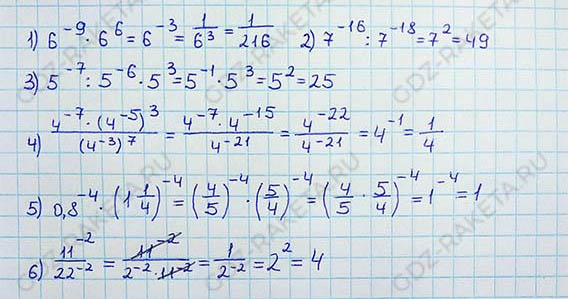 1) 6⁻⁹ · 6⁶ = 6⁻³ = 1/6³ = 1/216 2) 7⁻¹⁶ : 7⁻¹⁸ = 7² = 49
3) 5⁻⁷ : 5⁻⁶ · 5³ = 5⁻¹ · 5³ = 5² = 25
4) (4⁻⁷ · (4⁻⁵)³)/((4⁻³)⁷) = (4⁻⁷ · 4⁻¹⁵)/(4⁻²¹) = 4⁻²²/4⁻²¹ = 4⁻¹ = 1/4
5) 0,8⁻⁴ · (1 1/4)⁻⁴ = (4/5)⁻⁴ · (5/4)⁻⁴ = (4/5 · 5/4)⁻⁴ = 1⁻⁴ = 1
6) 11⁻²/22⁻² = 11⁻²/(2⁻² · 11⁻²) = 1/2⁻² = 2² = 4
GDZ-RAKETA.RU